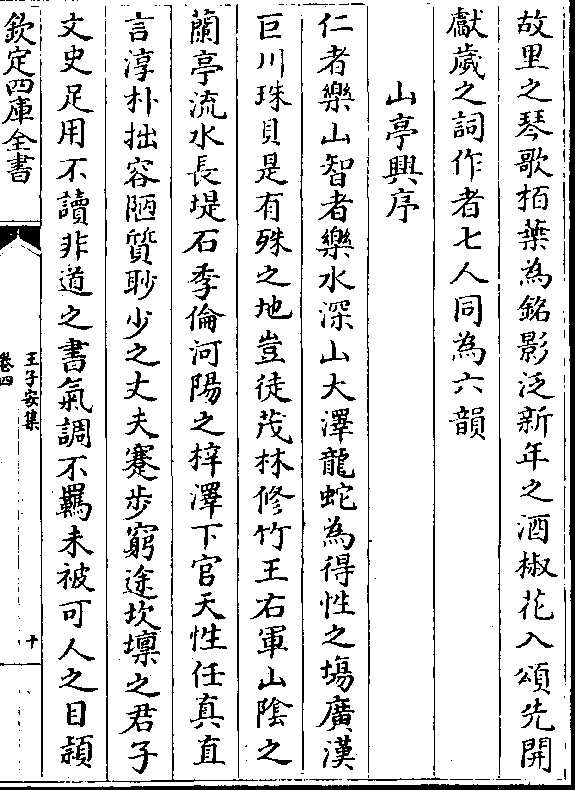 故里之琴歌栢葉為銘影泛新年之酒椒花入頌先開
獻歲之詞作者七人同為六韻
山亭興序
仁者樂山智者樂水深山大澤龍蛇為得性之塲廣漢
巨川珠貝是有殊之地豈徒茂林修竹王右軍山隂之
蘭亭流水長堤石季倫河陽之梓澤下官天性任真直
言淳朴拙容陋質眇少之丈夫蹇步窮途坎壈之君子
文史足用不讀非道之書氣調不羈未被可人之目潁
欽定四庫全書
王子安集
卷四
十